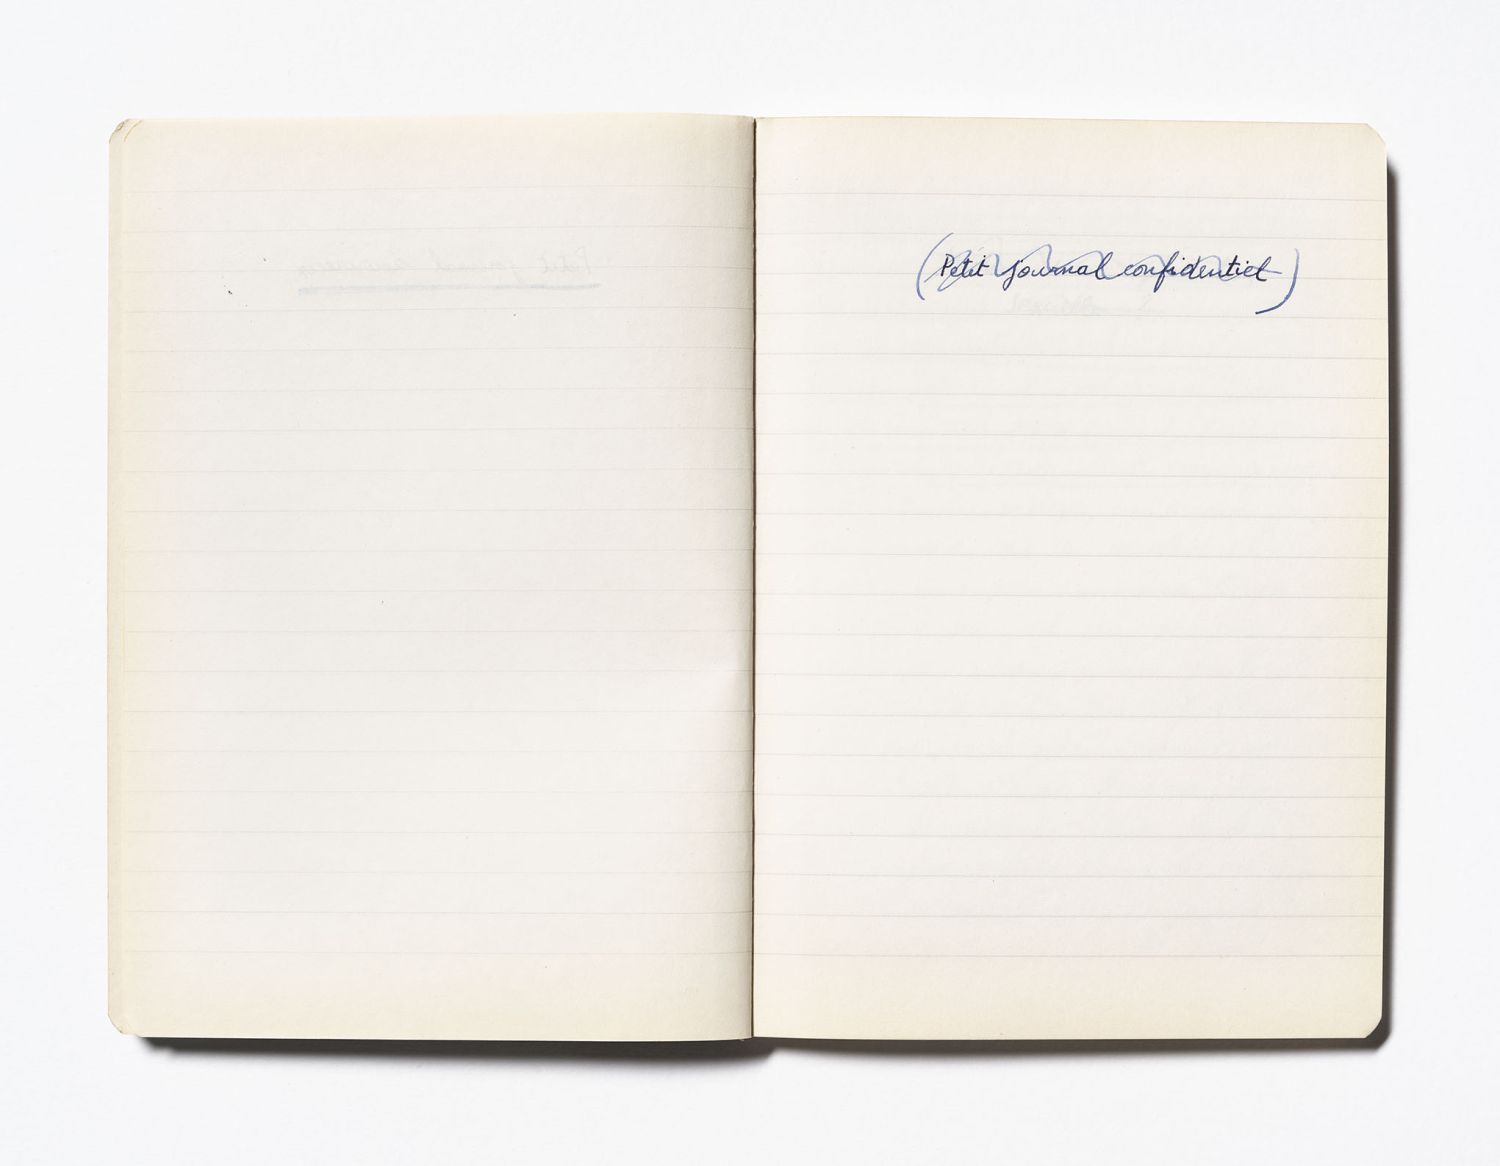 (Petit journal confidentiel)